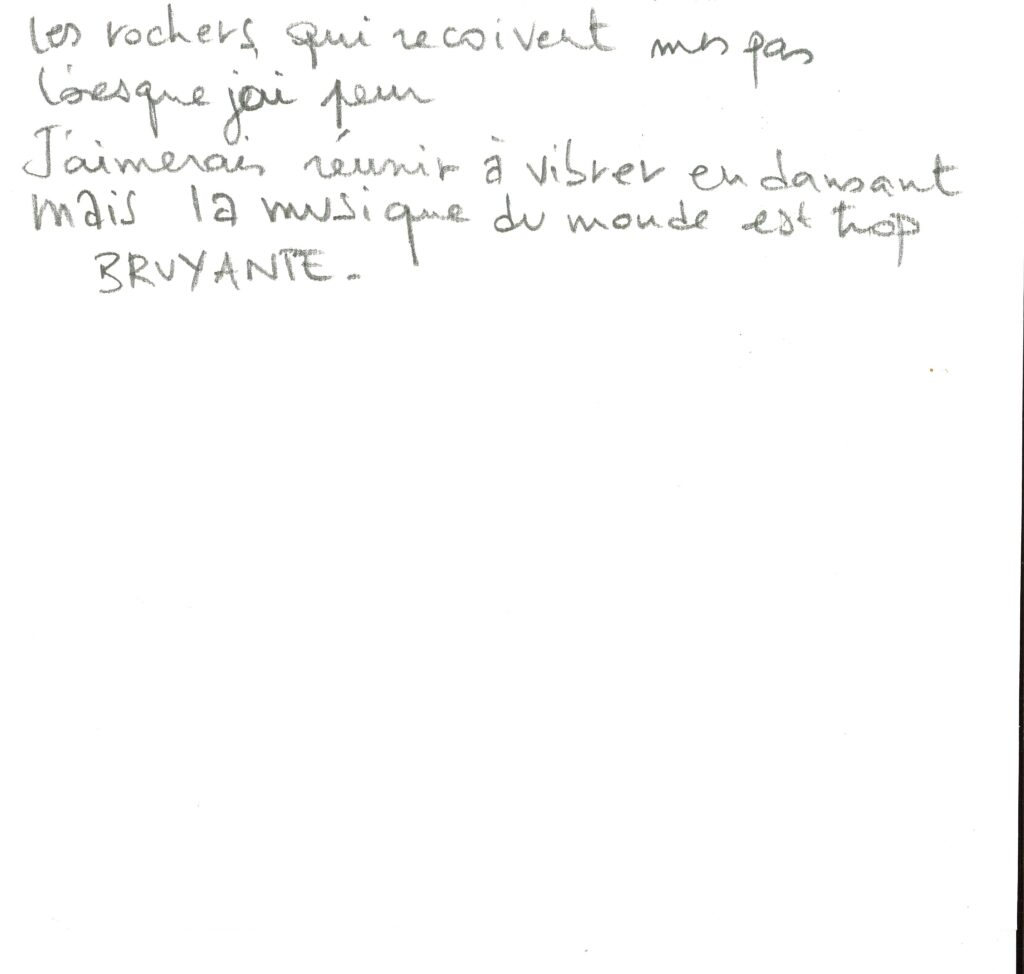 les rochers, qui recoivent mes pas
Lorsque j'ai peur
J'aimerais réunir à vibrer en dansant
mais la musique du monde est trop
BRUYANTE.